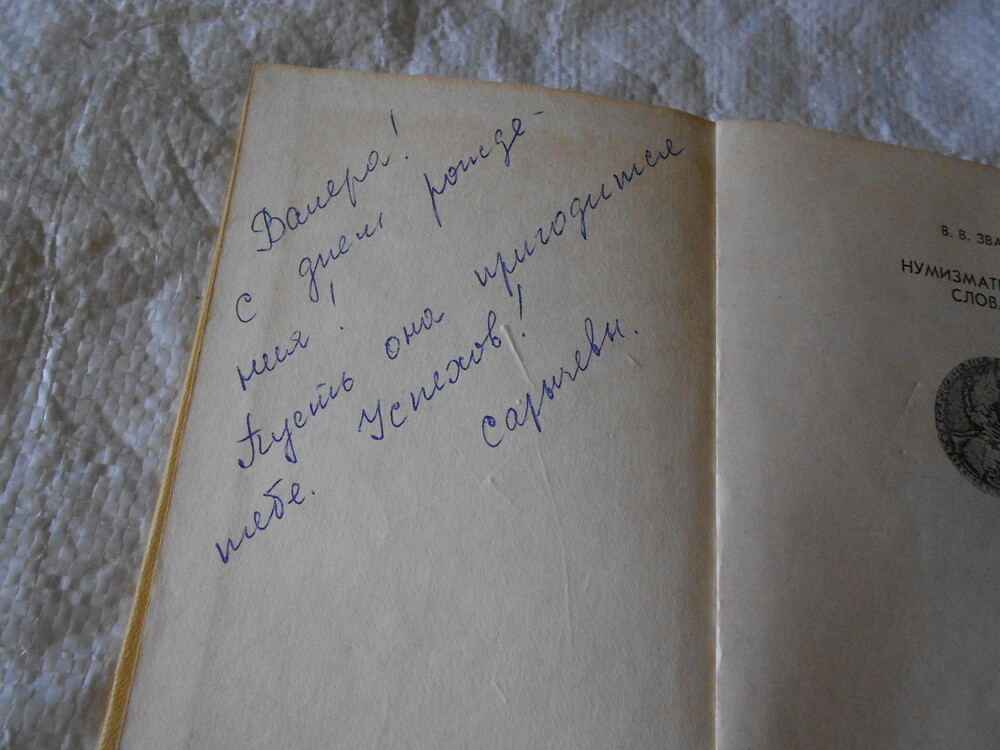 Валера!
С днем рожде-
ния!
Пусть она пригодится
тебе. Успехов!
Сарычевы.
В. В. ЗВА
НУМИЗМАТИ
СЛОВ